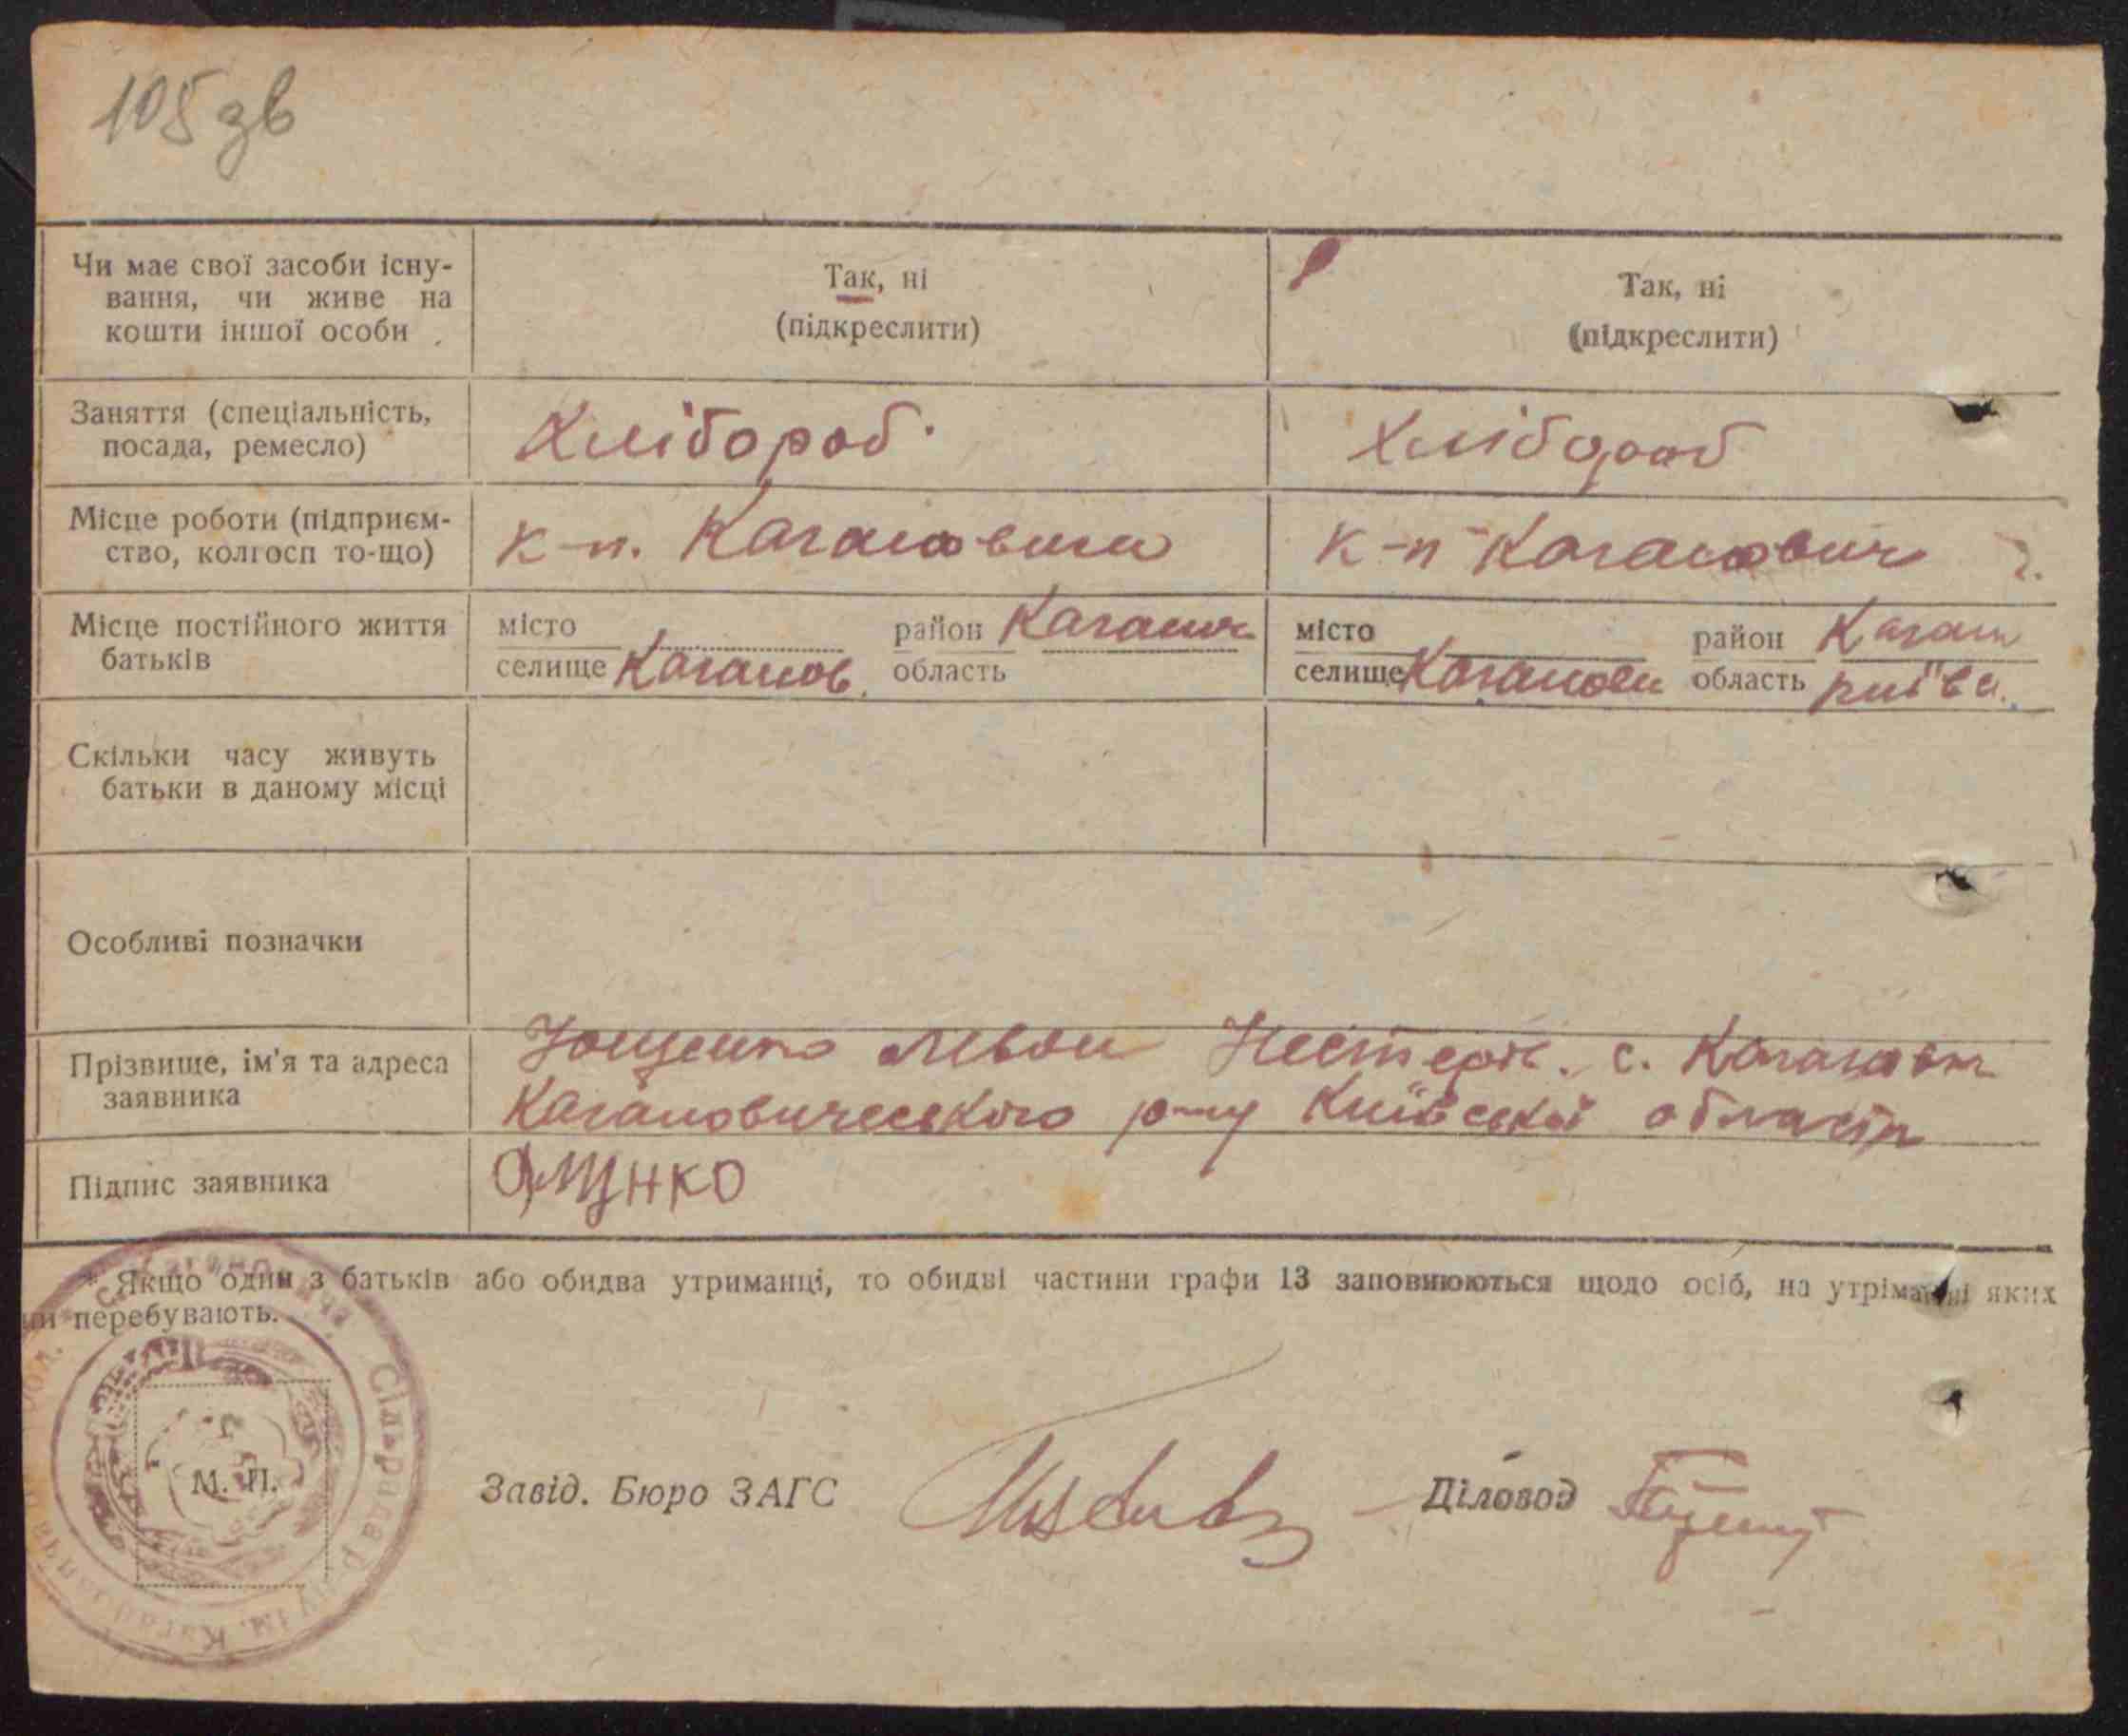 105 зв
Чи має свої засоби існу-
вання, чи живе на
кошти іншої особи
Так, ні
(підкреслити)
Так, ні
(підкреслити)
Заняття (спеціальність,
посада, ремесло)
Хлібороб
Хлібороб
Місце роботи (підприєм-
ство, колгосп то-що)
к-п. Кагановича
к-п Каганович
Місце постійного життя
батьків
місто
селище Каганов.
район Каганич
область
місто
селище Каганови
район Каган
область
Скільки часу живуть
батьки в даному місці
Особливі позначки
Прізвище, ім'я та адреса
заявника
Ющенко Левон Нестеров. с. Каганович
Кагановичеського р-ну Київської области
Підпис заявника
* Якщо один з батьків або обидва утриманці, то обидві частини графи 13 заповнюються щодо осіб, на утріманні яких
ни перебувають.
Сільрада
М. П.
Завід. Бюро ЗАГС
Діловод